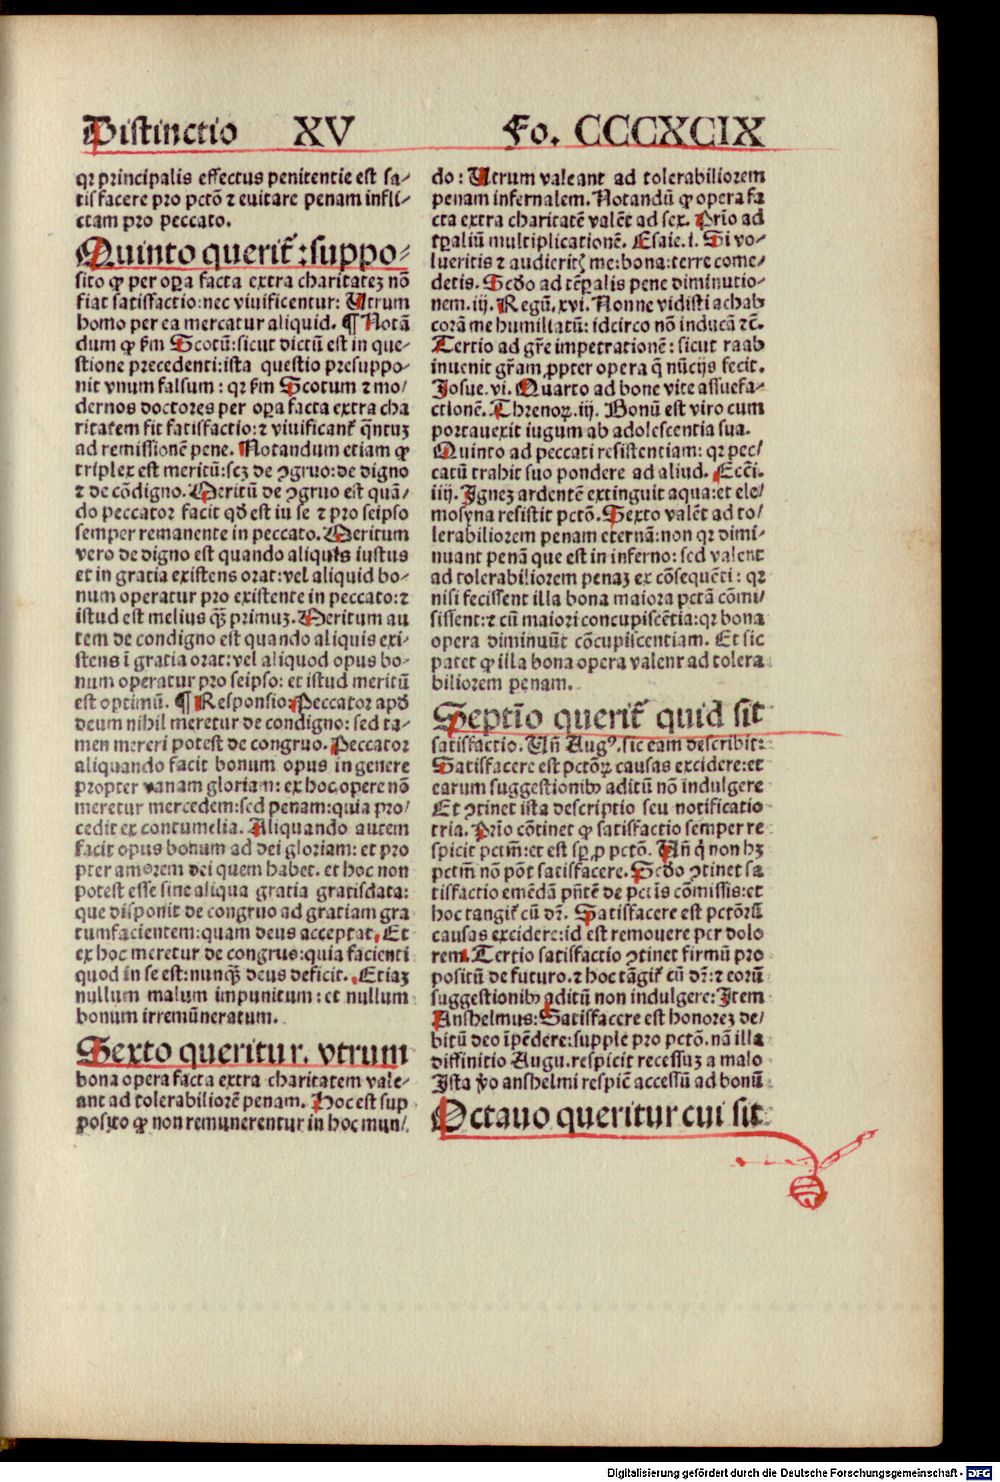 Distinctio XV Fo. CCCXCIX
qꝛ principalis effectus penitentie est sa⸗
tisfacere pro pctō ⁊ euitare penam infli⸗
ctam pro peccato.
Quinto querit᷑ : suppo⸗
sito ꝙ per oꝑa facta extra charitatez nō
fiat satisfactio: nec viuificentur: Utrum
homo per ea mercatur aliquid. ¶ Notā
dum ꝙ ẜm Scotū: sicut dictū est in que⸗
stione precedenti: ista questio presuppo⸗
nit vnum falsum : qꝛ ẜm Scotum ⁊ mo/
dernos doctores per oꝑa facta extra cha
ritatem fit satisfactio: ⁊ viuificant᷑ qͣntuꝫ
ad remissionē pene. Notandum etiam ꝙ
triplex est meritū: scꝫ de ꝯgruo: de digno
⁊ de cōdigno. Meritū de ꝯgruo est quā/
do peccator facit qd̓ est iu se ⁊ pro seipso
semper remanente in peccato. Meritum
vero de digno est quando aliquis iustus
et in gratia existens orat: vel aliquid bo⸗
num operatur pro existente in peccato: ⁊
istud est melius qͣ̄ꝫ primuꝫ. Meritum au
tem de condigno est quando aliquis exi⸗
stens ī gratia orat: vel aliquod opus bo⸗
num operatur pro seipso: et istud meritū
est optimū. ¶ Responsio: Peccator apd̓
deum nihil meretur de condigno: sed ta⸗
men mereri potest de congruo. Peccator
aliquando facit bonum opus in genere
propter vanam gloriam: ex hoc opere nō
meretur mercedem: sed penam: quia pro/
cedit ex contumelia. Aliquando autem
facit opus bonum ad dei gloriam: et pro
pter amorem dei quem habet. et hoc non
potest esse sine aliqua gratia gratisdata:
que disponit de congruo ad gratiam gra
tumfacientem: quam deus acceptat. Et
ex hoc meretur de congrus: quia facienti
quod in se est: nunqͣ̄ꝫ deus deficit. Etiaꝫ
nullum malum impunitum: et nullum
bonum irremūneratum.
Sexto queritur. vtrum
bona opera facta extra charitatem vale⸗
ant ad tolerabiliorē penam. Hoc est sup
posito ꝙ non remunerentur in hoc mun/
do : Utrum valeant ad tolerabiliorem
penam infernalem. Notandū ꝙ opera fa
cta extra charitatē valēt ad sex. Prīo ad
tꝑaliū multiplicationē. Esaie. i. Si vo⸗
lueritis ⁊ audieritꝭ me: bona: terre come⸗
detis. Scd̓o ad tēꝑalis pene diminutio⸗
nem. iij. Regū. xvi. Nonne vidisti achab
corā me humiliatū: idcirco nō inducā ⁊c̄.
Tertio ad gr̄e impetrationē: sicut raab
inuenit gr̄am ꝓpter opera q̄ nūcijs fecit.
Josue. vi. Quarto ad bone vite assuefa⸗
ctionē. Threnoꝝ. iij. Bonū est viro cum
portauexit iugum ab adolescentia sua.
Quinto ad peccati resistentiam: qꝛ pec/
catū trahit suo pondere ad aliud. Ecc̄i.
iiij. Ignez ardentē extinguit aqua: et ele/
mosyna resistit pctō. Sexto valēt ad to/
lerabiliorem penam eternā: non qꝛ dimi⸗
nuant penā que est in inferno: sed valent
ad tolerabiliorem penaꝫ ex cōsequēti : qꝛ
nisi fecissent illa bona maiora pctā cōmi/
sissent: ⁊ cū maiori concupiscētia: qꝛ bona
opera diminuūt cōcupiscentiam. Et sic
patet ꝙ illa bona opera valenr ad tolera
biliorem penam.
Septīo querit᷑ quid sit
satisfactio. Uñ Augꝰ. sic eam describit:
Satisfacere est pctōꝝ causas excidere: et
earum suggestionibꝰ aditū nō indulgere
Et ꝯtinet ista descriptio seu notificatio
tria. Prīo cōtinet ꝙ satisfactio semper re
spicit pctm̄: et est sꝑ ꝓ pctō. Uñ q̇ non hꝫ
pctm̄ nō pōt satisfacere. Scd̓o ꝯtinet sa
tisfactio emēdā pn̄te de pctis cōmissis: et
hoc tangit᷑ cū dr̄. Satisfacere est pctōrū
causas excidere: id est remouere per dolo
rem. Tertio satisfactio ꝯtinet firmū pro
positū de futuro. ⁊ hoc tāgit᷑ cū dr̄: ⁊ eorū
suggestionibꝰ aditū non indulgere: Item
Anshelmus: Satisfacere est honorez de/
bitū deo īpēdere: supple pro pctō. nā illa
diffinitio Augu. respicit recessuꝫ a malo
Ista v̓o anshelmi respic̄ accessū ad bonū
Octauo queritur cui sit
Digitalisierung gefördert durch die Deutsche Forschungsgemeinschaft - DFG